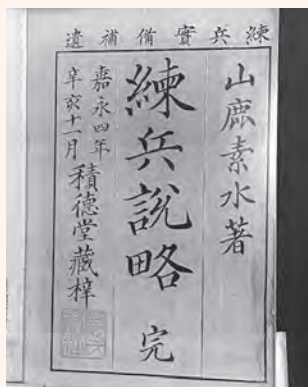 練兵實備補遺
山鹿素水著
練兵說略 完
嘉永四年
辛亥十一月
積德堂藏梓